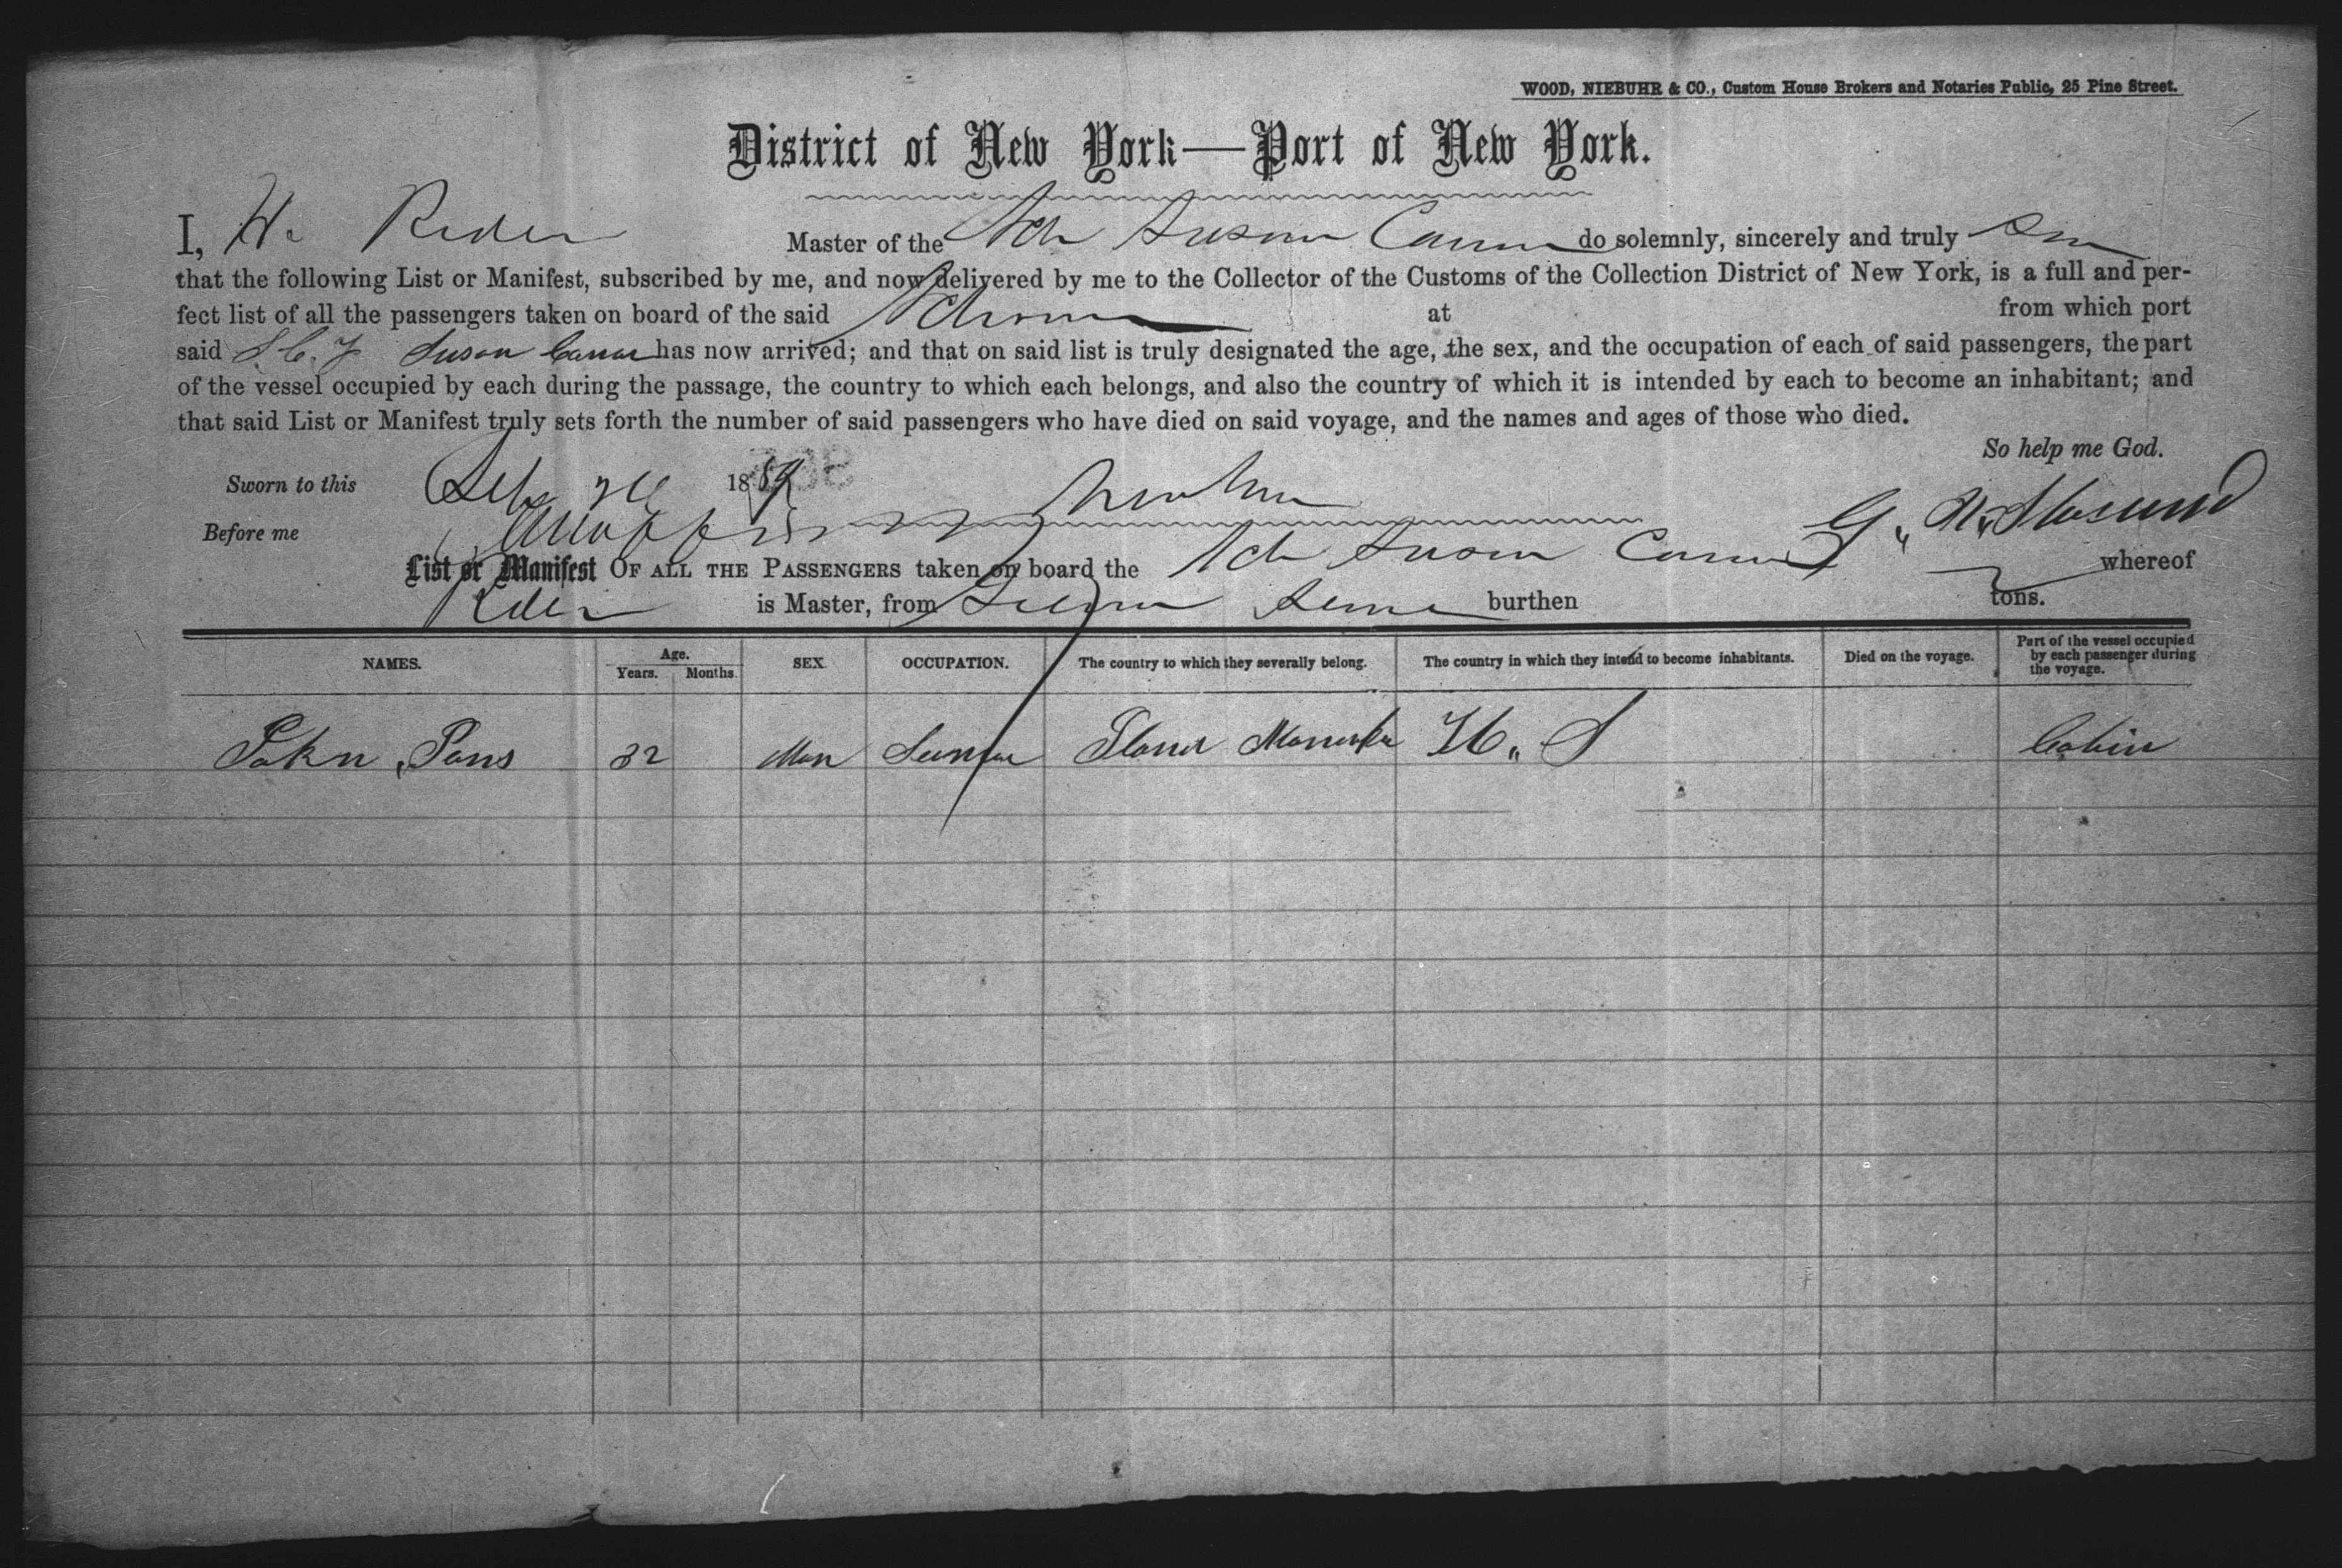 WOOD, NIEBUHR & CO., Custom House Brokers and Notaries Public, 25 Pine Street.
District of New York—Port of New York.
I, Rider Master of the Sch Susan do solemnly, sincerely and truly
that the following List or Manifest, subscribed by me, and now delivered by me to the Collector of the Customs of the Collection District of New York, is a full and per-
fect list of all the passengers taken on board of the said at from which port
said Susan has now arrived; and that on said list is truly designated the age, the sex, and the occupation of each of said passengers, the part
of the vessel occupied by each during the passage, the country to which each belongs, and also the country of which it is intended by each to become an inhabitant; and
that said List or Manifest truly sets forth the number of said passengers who have died on said voyage, and the names and ages of those who died.
So help me God.
Sworn to this 1889
Before me
List or Manifest OF ALL THE PASSENGERS taken on board the Sch Susan whereof
Rider is Master, from burthen tons.
NAMES. Age. Years. Months. SEX. OCCUPATION. The country to which they severally belong. The country in which they intend to become inhabitants. Died on the voyage. Part of the vessel occupied by each passenger during the voyage.
John Pons 32 Man U. S Cabin